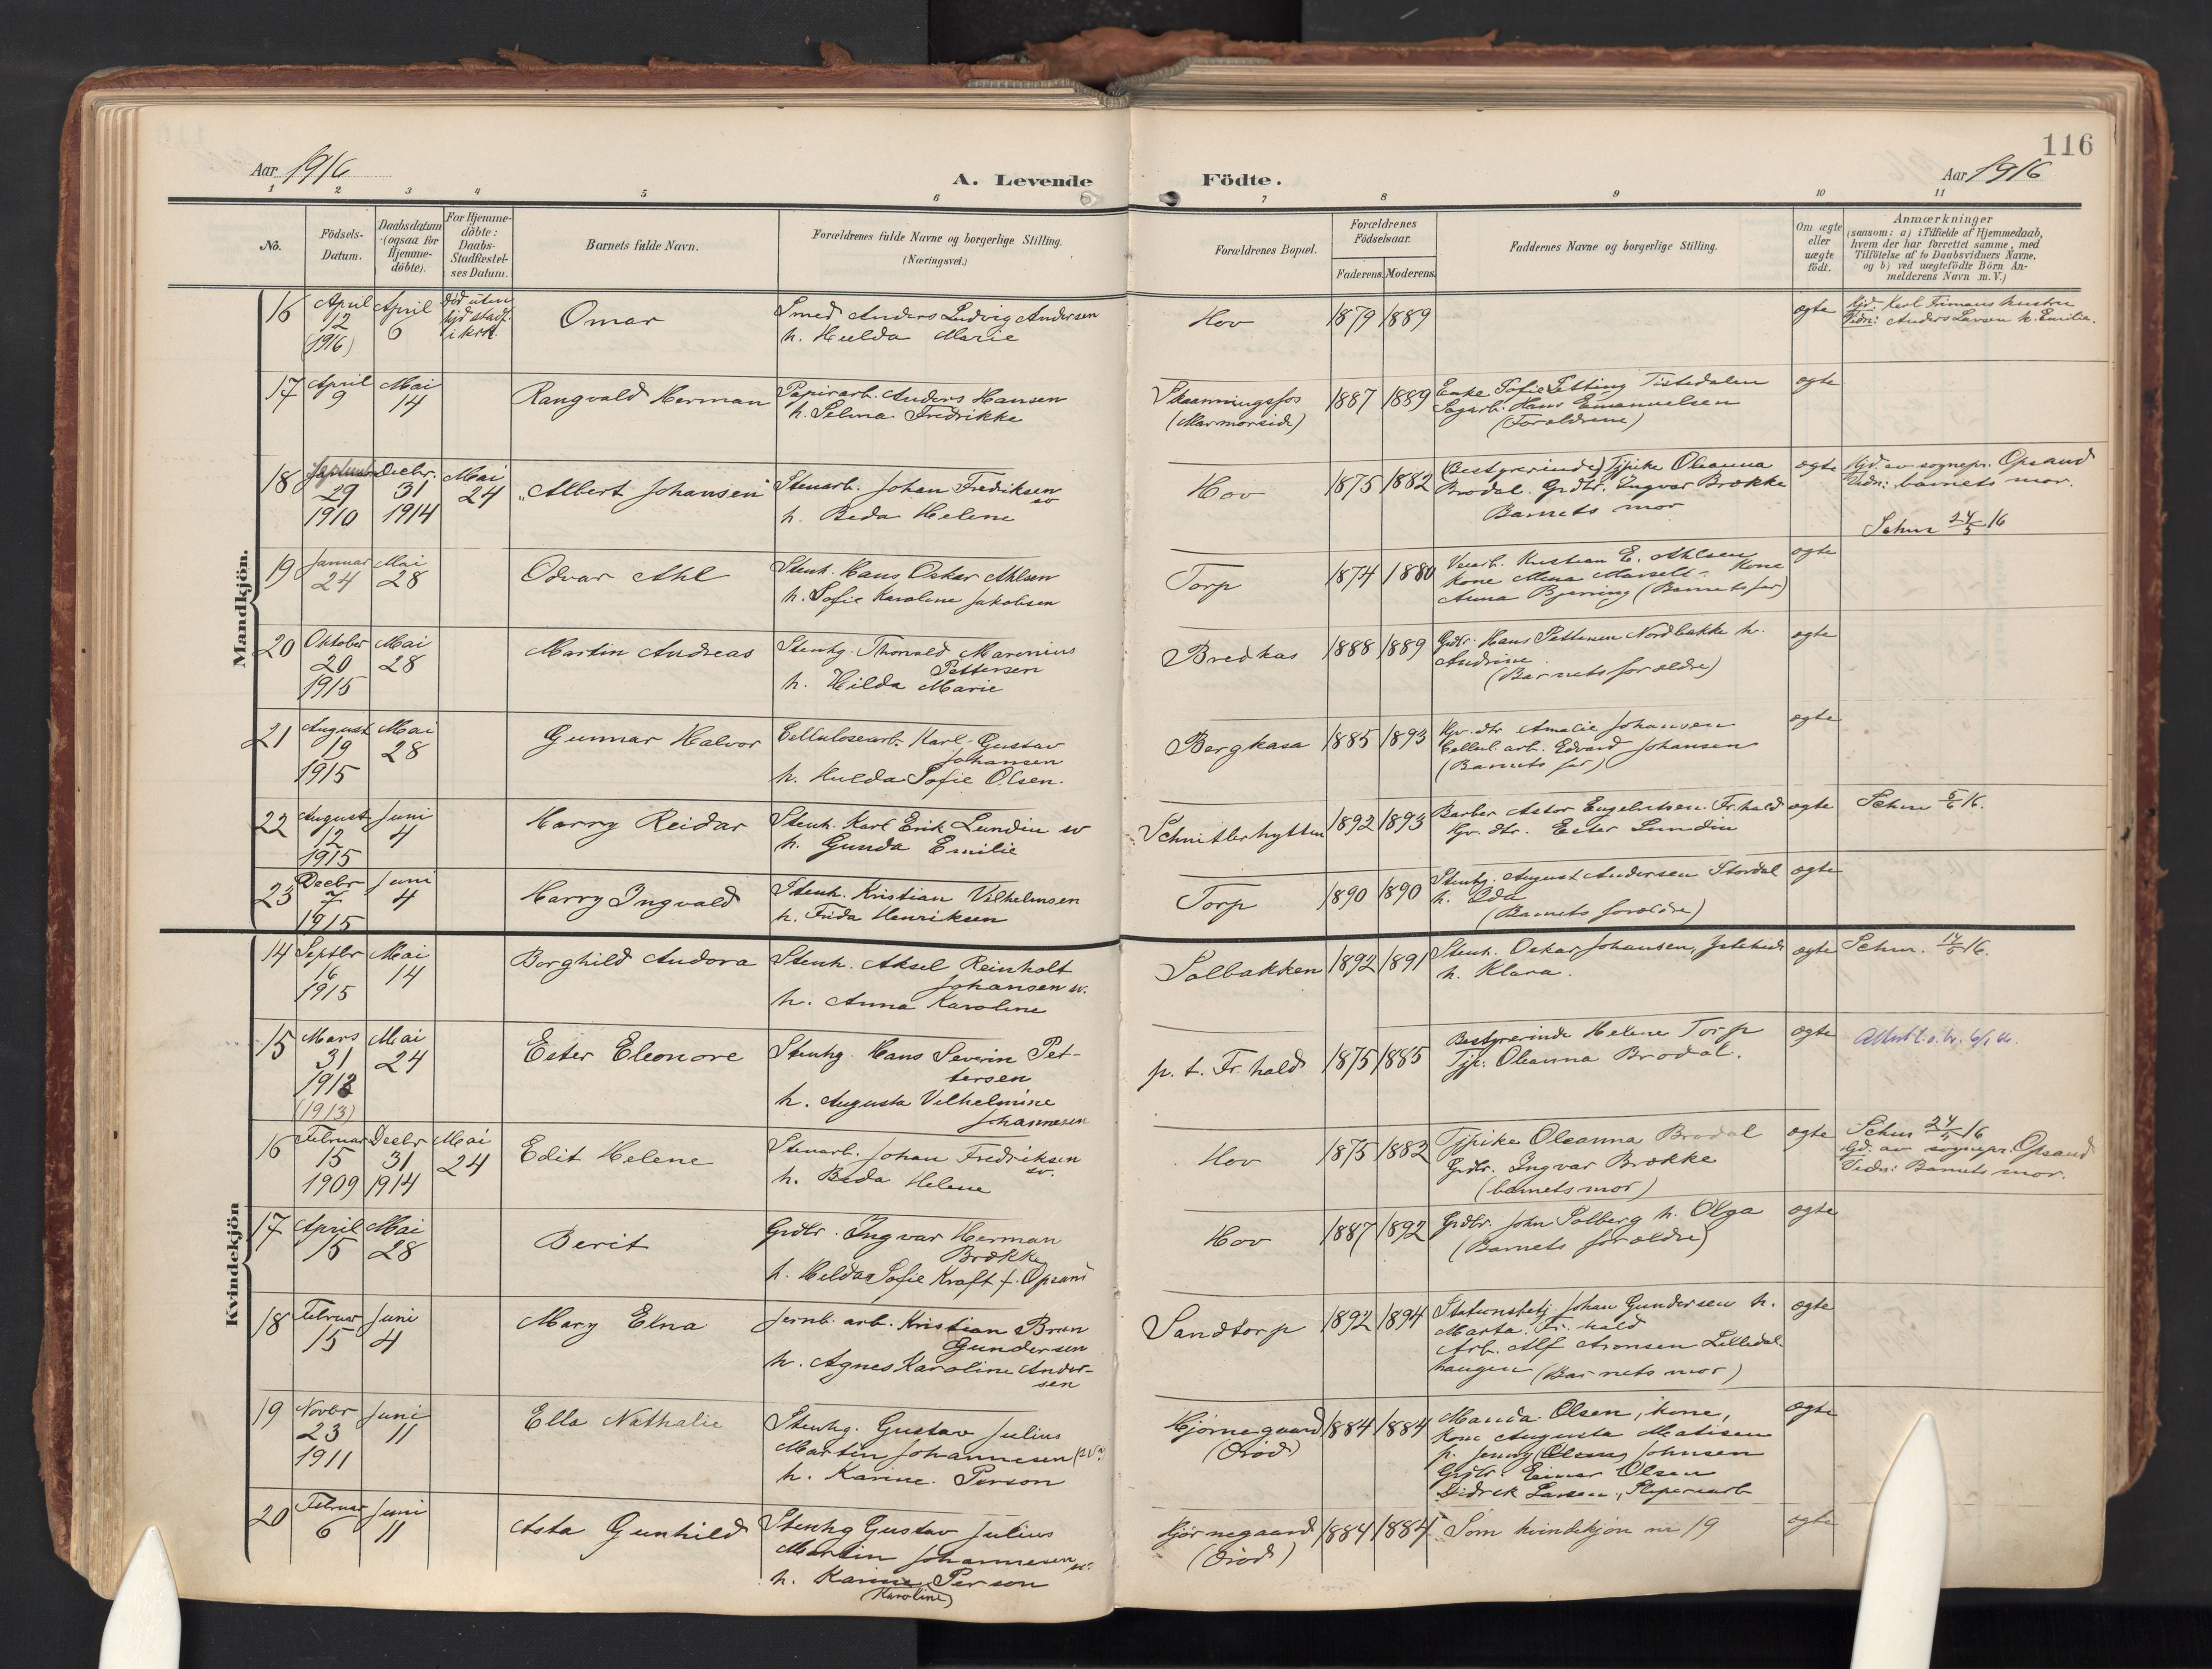 116
Aar 1916
A. Levende Födte.
Aar 1916
1 2 3 4 5 6 7 8 9 10 11
No.
Födsels-
Datum.
Daabsdatum
(ogsaa for
Hjemme-
döbte).
For Hjemme-
döbte:
Daabs-
Stadfæstel-
ses Datum.
Barnets fulde Navn.
Forældrenes fulde Navne og borgerlige Stilling.
(Næringsvei.)
Forældrenes Bopæl.
Forældrenes
Födselsaar.
Faderens. Moderens.
Faddernes Navne og borgerlige Stilling.
Om ægte
eller
uægte
födt.
Anmærkninger
(saasom: a) i Tilfælde af Hjemmedaab,
hvem der har forrettet samme, med
Tilföielse af to Daabsvidners Navne,
og b) ved uægtefödte Börn An-
melderens Navn m. V.)
Mandkjön.
16 April 12 (1916) April 6 Död uten hjd stadf. i kirk.
Omar
Smed Anders Ludvig Andersen
h. Hulda Marie
Hov 1879 1889 ægte
Anders Larsen h. Emilie.
17 April 9 Mai 14
Rangvald Herman
Papirarb. Anders Hansen
h. Selma Fredrikke
Skaanningsfos
(Marmorside)
1887 1889
Enke Sofie Tistedalen
Sagarb. Hans Emanuelsen
(Forældrene)
ægte
18 29 1910 Decbr. 31 1914 Mai 24
"Albert Johansen"
Stenarb. Johan Fredriksen
sv
h. Beda Helene
Hov 1875 1882
(Bestyrerinde) Tjpike Oleanna
Brodal. Grdbr. Ingvar Brække
Barnets mor
ægte
Hjd. av sognepr. Opsand
Vidn: barnets mor.
Schm 24/5 16
19 Januar 24 Mai 28
Odvar Ahl
Stenh. Hans Oskar Ahlsen
h. Sofie Karoline Jakobsen
Torp 1874 1880
Kristian E. Ahlsen
Kone
Anna Bjerring (Barnets far)
ægte
20 Oktober 20 1915 Mai 28
Martin Andreas
Stenhg. Thorvald Marenius
Pettersen
h. Hilda Marie
Bredkas 1888 1889
Grdbr. Hans Pettersen Nordbakke h.
Andrine
(Barnets forældre)
ægte
21 August 19 1915 Mai 28
Gunnar Halvor
Cellulosearb. Karl Gustav
Johansen
h. Hulda Sofie Olsen.
Bergkasa 1885 1893
Gp. dtr Amalie Johansen
Cellul. arb. Edvard Johansen
(Barnets far)
ægte
22 August 12 1915 Juni 4
Harry Reidar
Stenh. Karl Erik Lundin sv
h. Gunda Emilie
Schnitlerhytten 1892 1893
Barber Astor Engebretsen Fr.hald
Gp. dtr. Ester Lundin
ægte
Schm 5/6 16.
23 Decbr 7 1915 Juni 4
Harry Ingvald
Stenh. Kristian Vilhelmsen
h. Frida Henriksen
Torp 1890 1890
Stenhg. August Andersen Stordal
h. Ida
(Barnets forældre)
ægte
Kvindekjön
14 Septbr 16 1915 Mai 14
Borghild Andora
Stenh. Aksel Reinholt
Johansen sv.
h. Anna Karoline
Solbakken 1892 1891
Stenh. Oskar Johansen,
h. Klara.
ægte
Schm.
15 Mars 31 1912 (1913) Mai 24
Ester Eleonore
Stenhg. Hans Severin Pet-
tersen
h. Augusta Vilhelmine
Johannesen
p. t. Fr. hald 1875 1885
Bestyrerinde Helene Torp
Tjp. Oleanna Brodal.
ægte
16 Februar 15 1909 Decbr 31 1914 Mai 24
Edit Helene
Stenarb. Johan Fredriksen
sv.
h. Beda Helene
Hov 1875 1882
Tjpike Oleanna Brodal
Grdbr. Ingvar Brække
(barnets mor)
ægte
Schm 24/5 16
Hjd. av sognepr. Opsand
Vidn: Barnets mor.
17 April 15 Mai 28
Berit
Grdbr. Ingvar Herman
Brække
h. Hilda Sofie Kraft f. Opsand
Hov 1887 1892
Grdbr. John Solberg h. Olga
(Barnets forældre)
ægte
18 Februar 15 Juni 4
Mary Elna
Jernb. arb. Kristian Bran
Gundersen
h. Agnes Karoline Ander-
sen
Sandtorp 1892 1894
Stationsbetj. Johan Gundersen h.
Marta Fr. hald
Arb. Alf Aronsen Lilledal-
haugen (Barnets mor)
ægte
19 Novbr 23 1911 Juni 11
Ella Nathalie
Stenhg. Gustav Julius
Martin Johannesen
h. Karine Person
Hjørnegaard
(Öiöd)
1884 1884
Manda Olsen, kone,
Kone Augusta Matisen
p. Jenny Johnsen
Grdbr. Einar Olsen
Didrek Larsen, Sliperiarb
ægte
20 Februar 6 Juni 11
Asta Gunhild
Stenhg Gustav Julius
Martin Johannesen sv.
h. Karine Person
(Karoline)
Hjørnegaard
(Öiöd)
1884 1884
Som kvindekjön nr 19
ægte